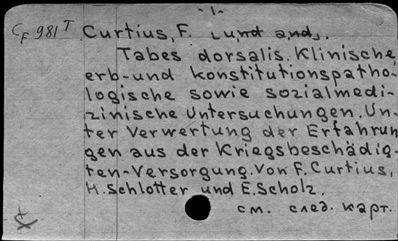 -1-
CF 981 T Curtius, F. [und and].
Tabes dorsalis. Klinische,
erb-und konstitutionspatho-
logische sowie sozialmedi-
zinische Untersuchungen. Un-
ter Verwertung der Erfahrun
gen aus der Kriegsbeschädig-
ten-Versorgung. Von F. Curtius,
H. Schlotter und E. Scholz.
см. след. карт.